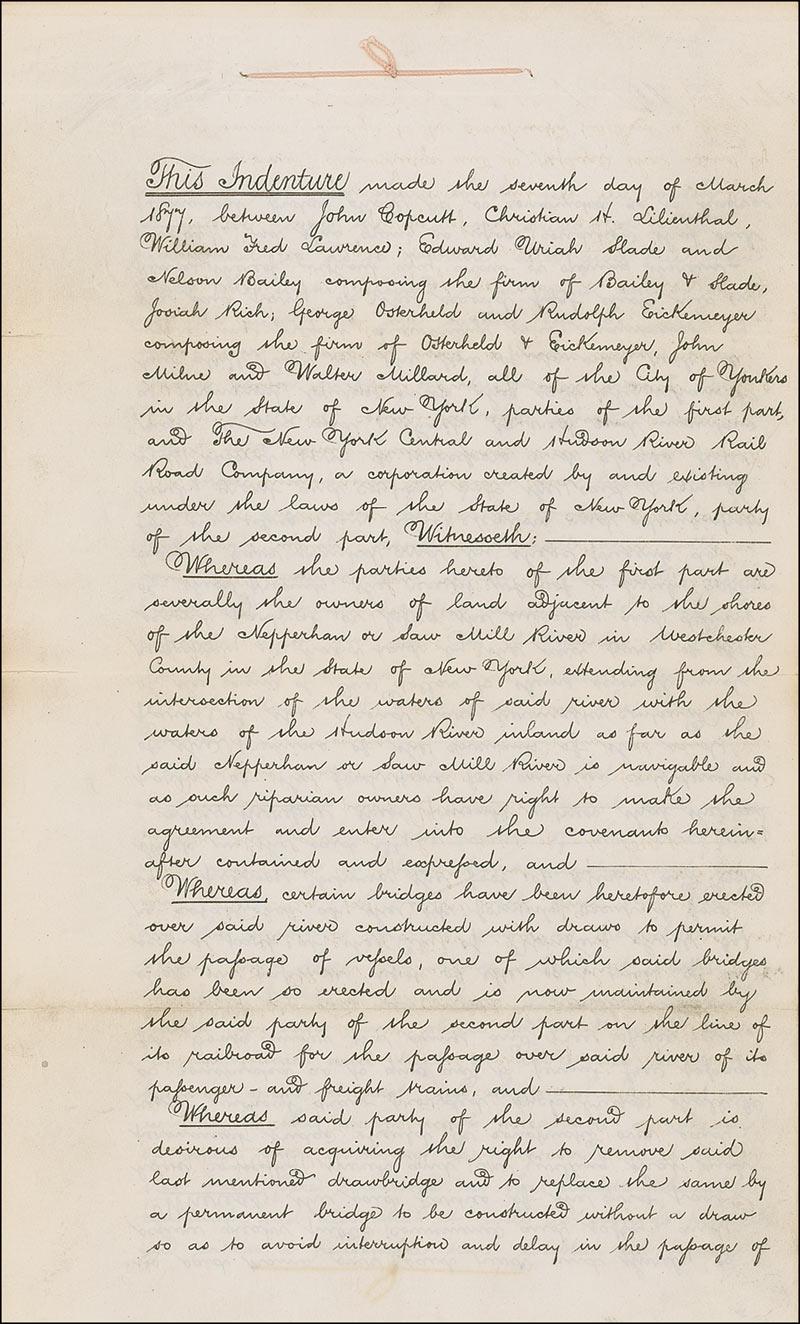 This Indenture made the seventh day of March
1877, between John Copcutt, Christian H. Lilienthal,
William Fred Lawrence; Edward Uriah Slade and
Nelson Bailey composing the firm of Bailey & Slade,
Josiah Rich; George Osterheld and Rudolph Eickemeyer
composing the firm of Osterheld & Eickemeyer, John
Milne and Walter Millard, all of the City of Yonkers
in the State of New York, parties of the first part,
and The New York Central and Hudson River Rail
Road Company, a corporation created by and existing
under the laws of the State of New York, party
of the second part, Witnesseth:
Whereas the parties hereto of the first part are
severally the owners of land adjacent to the shores
of the Nepperhan or Saw Mill River in Westchester
County in the State of New York, extending from the
intersection of the waters of said river with the
waters of the Hudson River inland as far as the
said Nepperhan or Saw Mill River is navigable and
as such riparian owners have right to make the
agreement and enter into the covenants herein=
after contained and expressed, and
Whereas, certain bridges have been heretofore erected
over said river constructed with draws to permit
the passage of vessels, one of which said bridges
has been so erected and is now maintained by
the said party of the second part on the line of
its railroad for the passage over said river of its
passenger - and freight trains, and
Whereas said party of the second part is
desirous of acquiring the right to remove said
last mentioned drawbridge and to replace the same by
a permanent bridge to be constructed without a draw
so as to avoid interruption and delay in the passage of